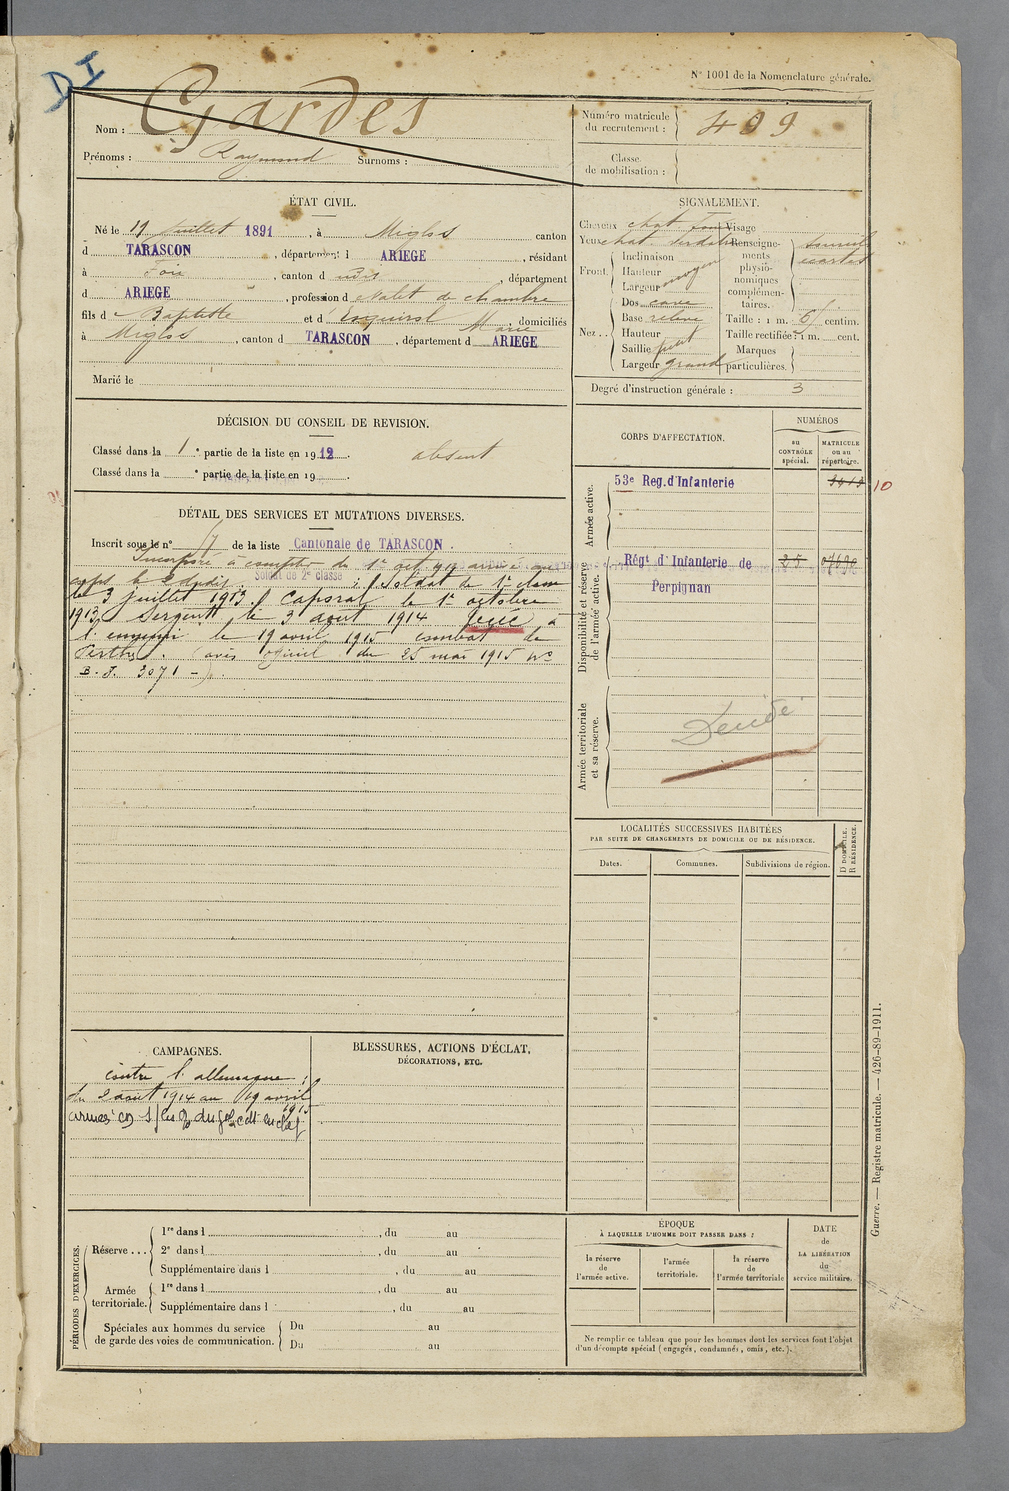 DI
N° 1001 de la Nomenclature générale.
Nom : Gardes
Prénoms : Raymond Surnoms :
Numéro matricule du recrutement : 499
Classe de mobilisation :
ÉTAT CIVIL.
Né le 19 Juillet 1891, à Miglos canton
d TARASCON, département d ARIEGE, résidant
à Foix, canton d udis, département
d ARIEGE, profession d Valet de chambre
fils d Baptiste et d Esquirol Marie domiciliés
à Miglos, canton d TARASCON, département d ARIEGE
Marié le
SIGNALEMENT.
Cheveux chat. foncé Visage
Yeux chat. verdâtre
Renseignements physionomiques complémentaires. sourcils écartés
Front. Inclinaison
Hauteur
Largeur moyen
Nez... Dos cave
Base relevé
Hauteur
Saillie petit
Largeur grand
Taille : 1 m. 61 centim.
Taille rectifiée : 1 m. cent.
Marques particulières.
Degré d'instruction générale : 3
DÉCISION DU CONSEIL DE REVISION.
Classé dans la 1e partie de la liste en 1912. absent
Classé dans la e partie de la liste en 19
DÉTAIL DES SERVICES ET MUTATIONS DIVERSES.
Inscrit sous le n° 17 de la liste Cantonale de TARASCON.
Incorporé à compter du 1er oct 1912 arrivé au
corps le 2 dudit. Soldat de 2e classe ; Soldat de 1re classe
le 3 juillet 1913. Caporal le 1er octobre
1913. Sergent le 3 aout 1914 Tué à
l'ennemi le 19 avril 1915 combat de
Perthes. (avis officiel du 25 mai 1915 No
B.J. 3071 -).
CORPS D'AFFECTATION.
NUMÉROS
au CONTRÔLE spécial.
MATRICULE ou au répertoire.
Armée active.
53e Reg. d'Infanterie
10
Disponibilité et réserve de l'armée active.
Régt d'Infanterie de
Perpignan
25
Armée territoriale et sa réserve.
Décédé
LOCALITÉS SUCCESSIVES HABITÉES
PAR SUITE DE CHANGEMENTS DE DOMICILE OU DE RÉSIDENCE.
Dates. Communes. Subdivisions de région. D DOMICILE. R RÉSIDENCE.
CAMPAGNES.
contre l'allemagne :
du 2 aout 1914 au 19 avril
1915
BLESSURES, ACTIONS D'ÉCLAT,
DÉCORATIONS, ETC.
PÉRIODES D'EXERCICES.
Réserve... 1re dans l , du au
2e dans l , du au
Supplémentaire dans l , du au
Armée territoriale. 1re dans l , du au
Supplémentaire dans l , du au
Spéciales aux hommes du service de garde des voies de communication. Du au
Du au
ÉPOQUE
À LAQUELLE L'HOMME DOIT PASSER DANS :
la réserve de l'armée active.
l'armée territoriale.
la réserve de l'armée territoriale
DATE de LA LIBÉRATION du service militaire.
Ne remplir ce tableau que pour les hommes dont les services font l'objet
d'un décompte spécial (engagés, condamnés, omis, etc.).
Guerre. — Registre matricule. — 426-89-1911.